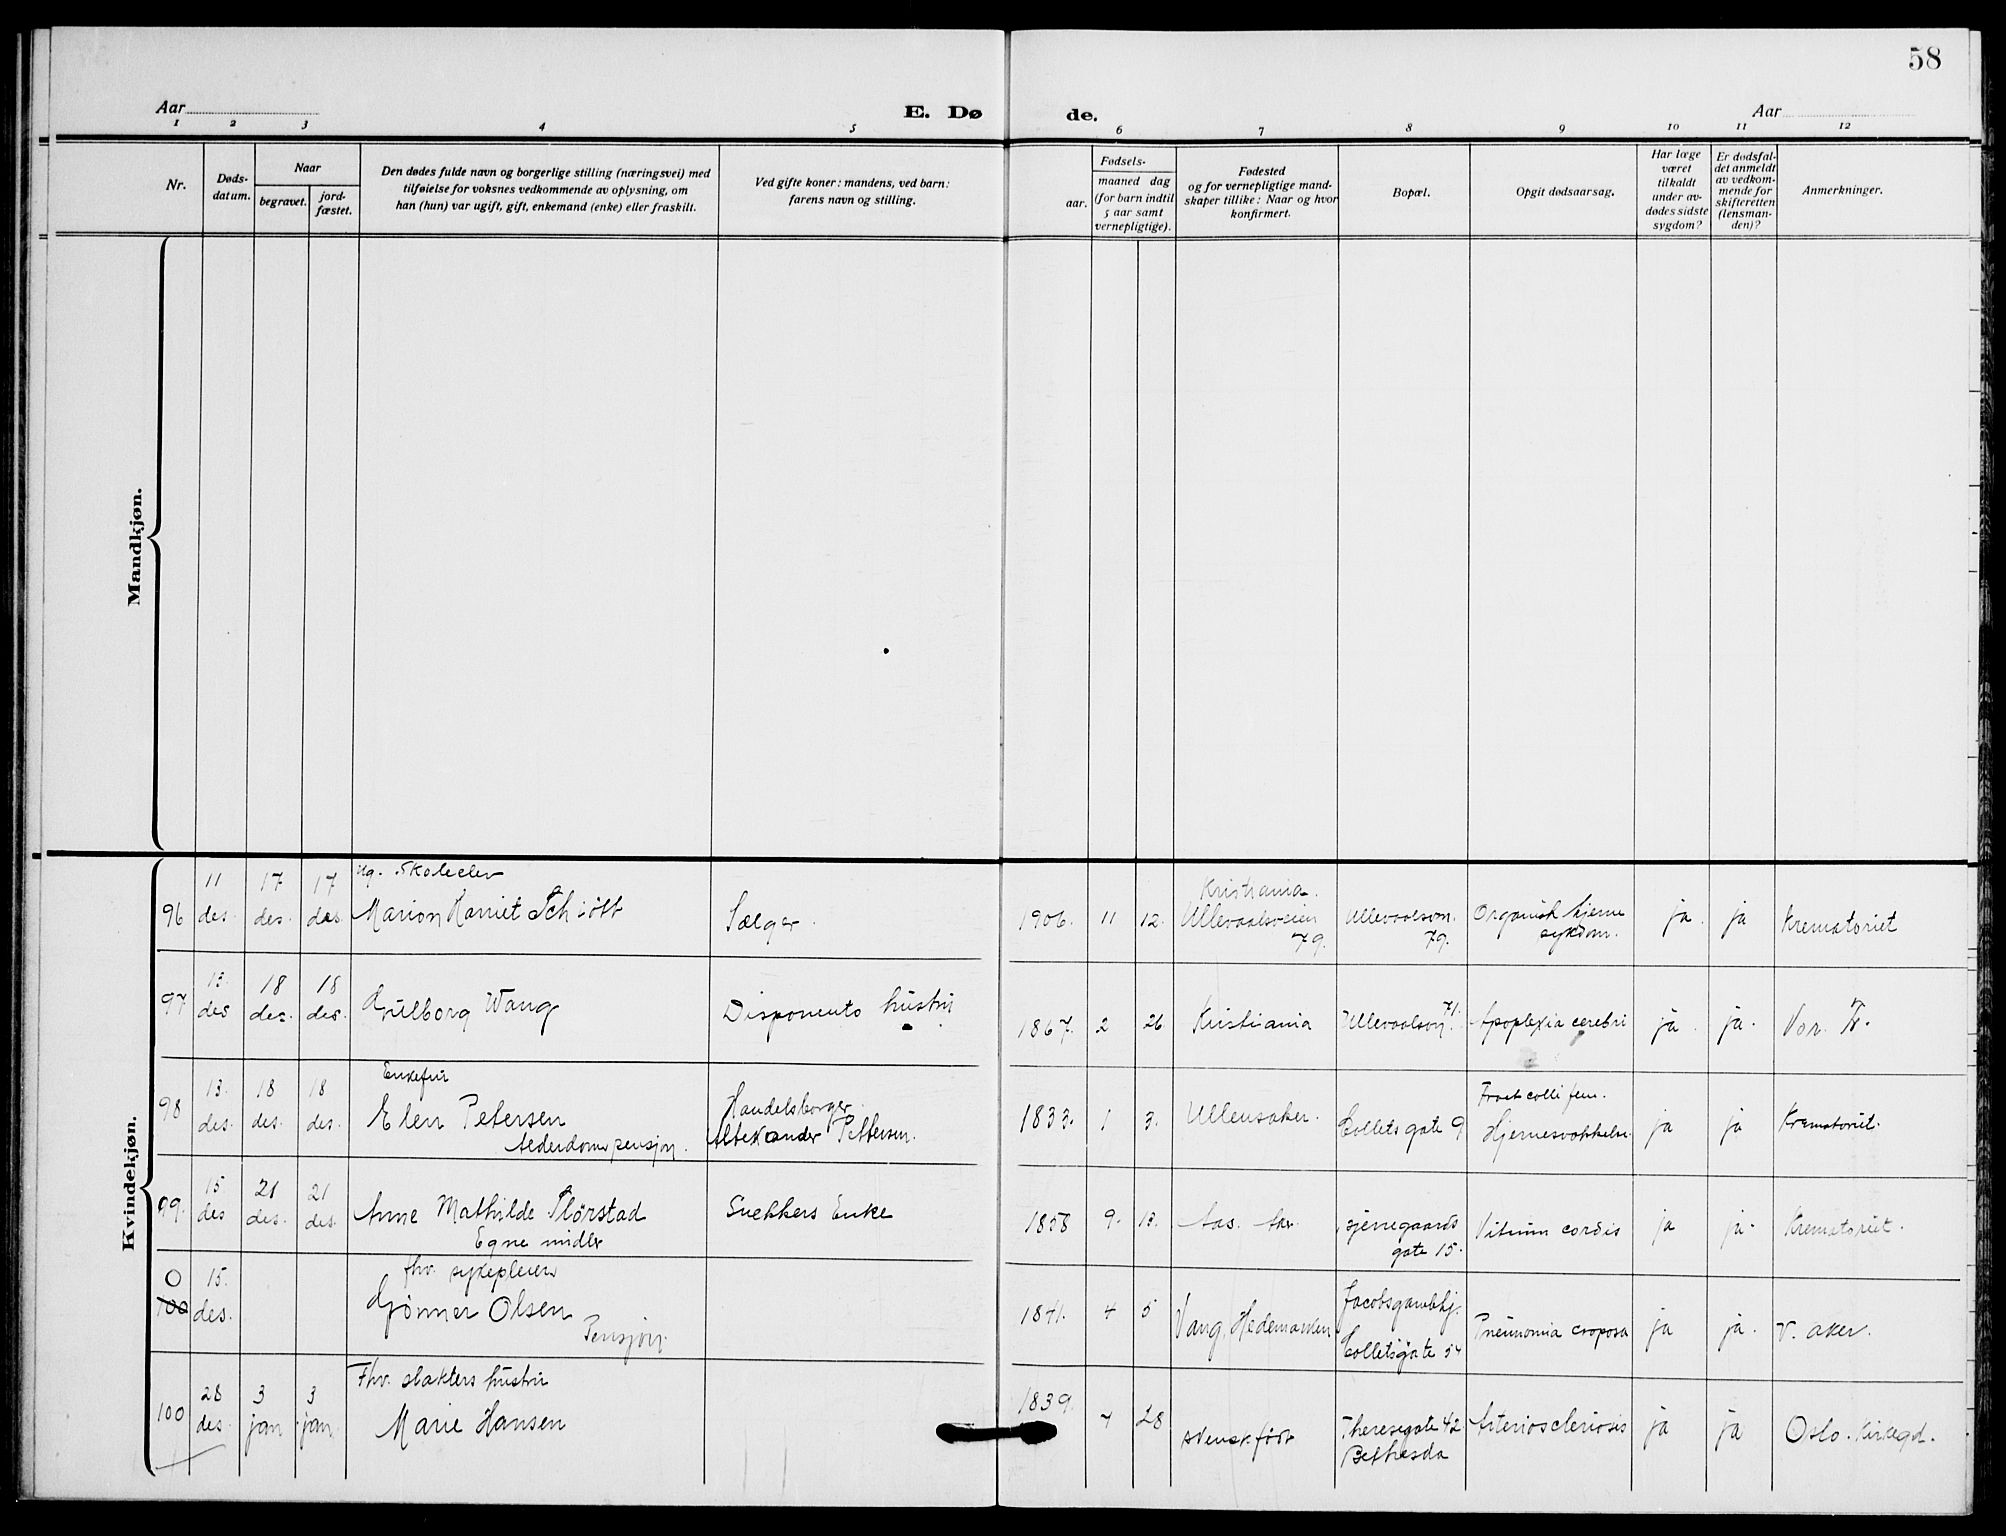 58
Aar
E. Dø de.
Aar
1 2 3 4 5 6 7 8 9 10 11 12
Nr.
Døds-
datum.
Naar
begravet.
jord-
fæstet.
Den dødes fulde navn og borgerlige stilling (næringsvei) med
tilføielse for voksnes vedkommende av oplysning, om
han (hun) var ugift, gift, enkemand (enke) eller fraskilt.
Ved gifte koner: mandens, ved barn:
farens navn og stilling.
Fødsels-
aar.
maaned dag
(for barn indtil
5 aar samt
vernepligtige).
Fødested
og for vernepligtige mand-
skaper tillike: Naar og hvor
konfirmert.
Bopæl.
Opgit dødsaarsag.
Har læge
været
tilkaldt
under av-
dødes sidste
sygdom?
Er dødsfal-
det anmeldt
av vedkom-
mende for
skifteretten
(lensman-
den)?
Anmerkninger.
Mandkjøn.
Kvindekjøn.
96
11
des.
17
des.
17
des.
Ug. Skoleelev
Marion Harriet Schiøtt
Sælger.
1906. 11 12.
Kristiania.
Ullevaalsveien
79.
Ullevaalsvn.
79.
Organisk hjerne
sykdom.
ja. ja
Krematoriet
97
13.
des
18
des.
18
des.
Gulborg Wang
Disponents hustru
1867. 2 26
Kristiania
Ullevaalsvn 71.
Apoplexia cerebri
ja. ja.
Vor. Fr.
98
13.
des.
18
des.
18
des.
Enkefru
Elen Petersen
Alderdomspensjon.
Handelsborger
Petersen.
1833. 1 3.
Ullensaker.
Collets gate 9
Fract colli fem.
ja ja
Krematoriet.
99.
15.
des
21
des.
21
des.
Anne Mathilde Flørstad
Egne midler
Snekkers Enke
1858 9. 13.
Aas. Ak.
Bjerregaards
gate 15.
Vitium cordis
ja ja.
Krematoriet.
0
100
15.
des.
fhv. sykepleier
Gjønner Olsen
Pensjon.
1841. 4 5
Vang, Hedemarken
Colletsgate 54
Pneumonia croposa
ja ja.
V. aker.
100
28
des.
3
jan
3
jan
Fhv. slakters hustru
Marie Hansen
1839. 7 28
svensk født
Theresegate 42
Bethesda
Arteriosclerosis
ja ja
Oslo. kirkegd.